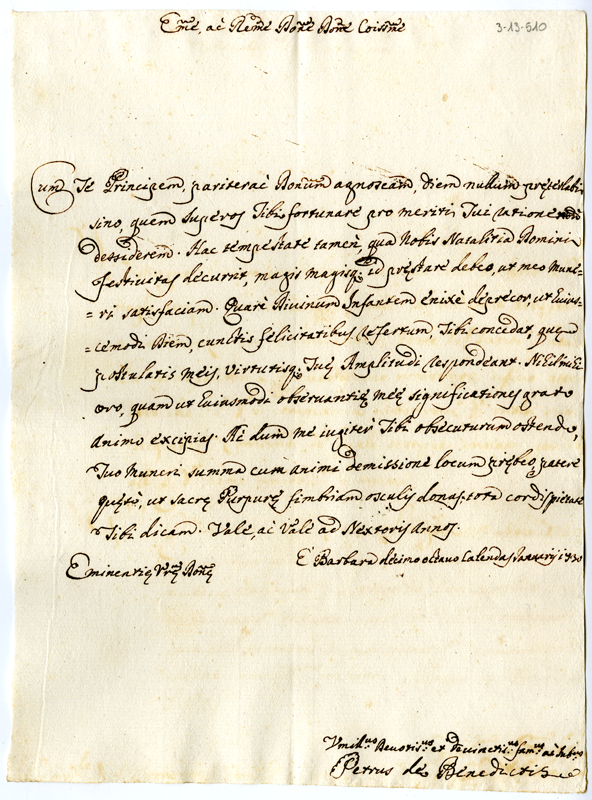 3-13-510
Em̃e, ac Rem̃e Dom̃e Dom̃e Coissm̃e
Cum Te Principem, pariterac Donum agnoscam, diem nullum prętęrlabi
sino, quem Superos Tibi fortunare pro meritis Tui ratione
dessiderem. Hac tempestate tamen, qua Nobis Natalitia Domini
festivitas decurrit, magis magisq; id pręstare debeo, ut meo Mune-
=ri satisfaciam. Quare Divinum Infantem enixè deprecor, ut Euius-
=cemodi Diem, cunctis felicitatibus refertum, Tibi concedat, quę
postulatis meis, Virtutisq; Tuę Amplitudi respondeant. Nihil
oro, quam ut Euiusmodi observantię meę significationes grato
animo excipias. At dum me iugiter Tibi obsecuturum ostendo,
Tuo Muneri summa cum animi demissione locum prębeo, patere
quęso, ut sacrę Purpurę fimbriam osculis donas, tota cordis pietate
Tibi dicam. Vale, ac Vale ad Nextoris Annos.
Eminentię Vrę Domę
È Barbara decimo octavo Calendas Januarij 1730
Vmilus Devotisus et Devinctisus famus ac
Petrus de Benedictis